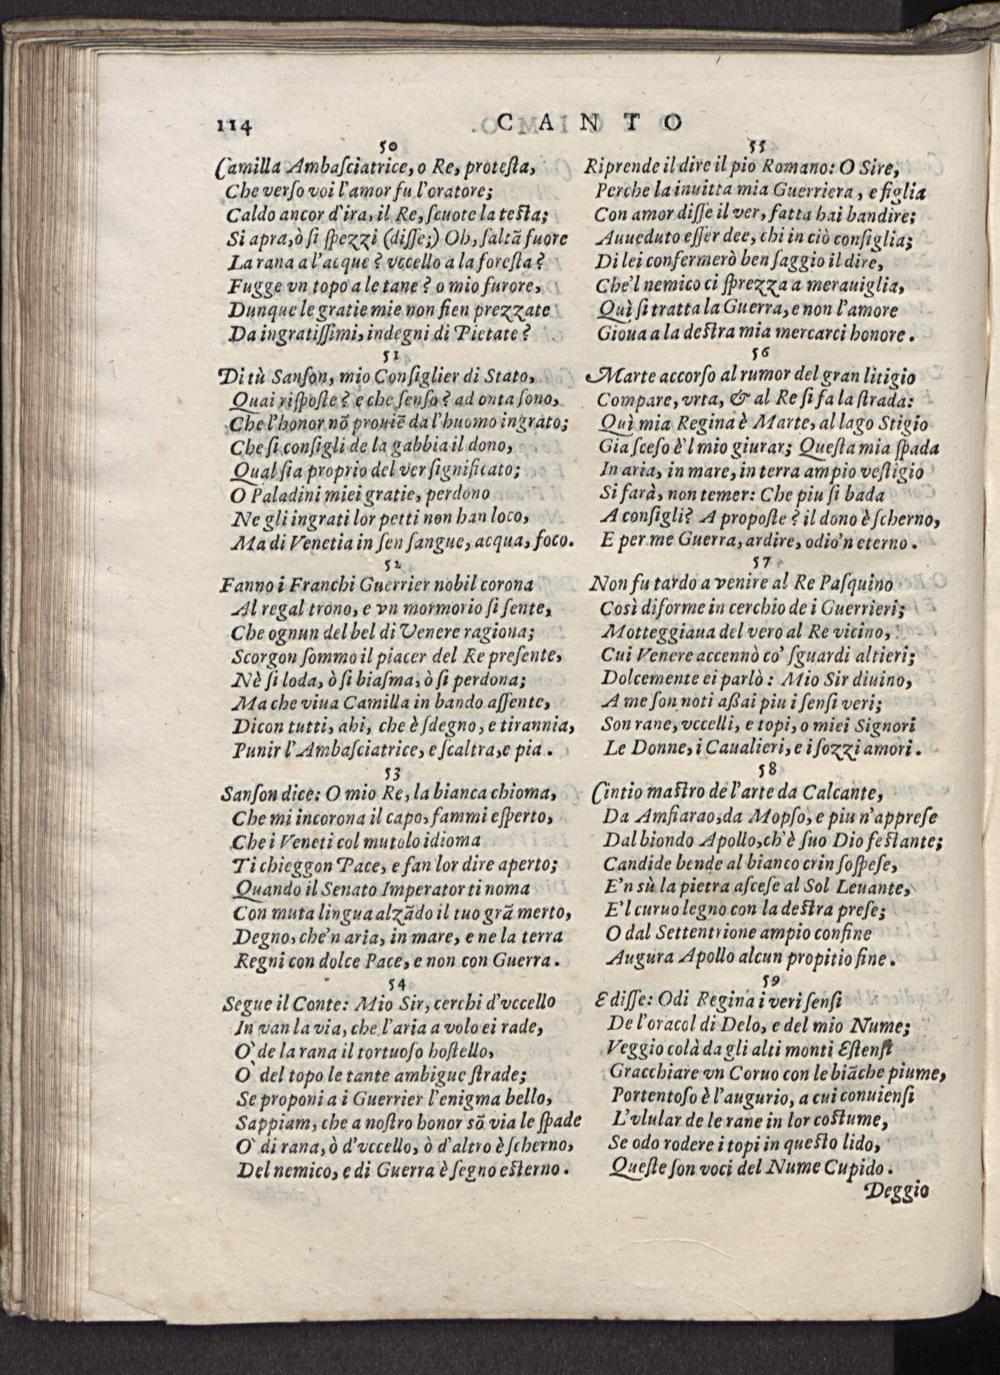 114
CANTO
50
Camilla Ambaſciatrice, o Re, proteſta,
Che verſo voi l'amor fu l'oratore;
Caldo ancor d'ira, il Re, ſcuote la teſta;
Si apra, ò ſi ſpezzi (diſſe;) Oh, ſaltã fuore
La rana a l'acque? vccello a la foreſta?
Fugge vn topo a le tane? o mio furore,
Dunque le gratie mie non fien prezzate
Da ingratiſſimi, indegni di Pietate?
51
Di tù Sanſon, mio Conſiglier di Stato,
Quai riſpoſte? e che ſenſo? ad onta ſono,
Che l'honor nõ prouiẽ da l'huomo ingrato;
Che ſi conſigli de la gabbia il dono,
Qual ſia proprio del ver ſignificato;
O Paladini miei gratie, perdono
Ne gli ingrati lor petti non han loco,
Ma di Venetia in ſen ſangue, acqua, foco.
52
Fanno i Franchi Guerrier nobil corona
Al regal trono, e vn mormorio ſi ſente,
Che ognun del bel di Venere ragiona;
Scorgon ſommo il piacer del Re preſente,
Nè ſi loda, ò ſi biaſma, ò ſi perdona;
Ma che viua Camilla in bando aſſente,
Dicon tutti, ahi, che è ſdegno, e tirannia,
Punir l'Ambaſciatrice, e ſcaltra, e pia.
53
Sanſon dice: O mio Re, la bianca chioma,
Che mi incorona il capo, fammi eſperto,
Che i Veneti col mutolo idioma
Ti chieggon Pace, e fan lor dire aperto;
Quando il Senato Imperator ti noma
Con muta lingua alzãdo il tuo grã merto,
Degno, che'n aria, in mare, e ne la terra
Regni con dolce Pace, e non con Guerra.
54
Segue il Conte: Mio Sir, cerchi d'vccello
In van la via, che l'aria a volo ei rade,
O' de la rana il tortuoſo hoſtello,
O' del topo le tante ambigue ſtrade;
Se proponi a i Guerrier l'enigma bello,
Sappiam, che a noſtro honor sõ via le ſpade
O' di rana, ò d'vccello, ò d'altro è ſcherno,
Del nemico, e di Guerra è ſegno eſterno.
55
Riprende il dire il pio Romano: O Sire,
Perche la inuitta mia Guerriera, e figlia
Con amor diſſe il ver, fatta hai bandire;
Auueduto eſſer dee, chi in ciò conſiglia;
Di lei confermerò ben ſaggio il dire,
Che'l nemico ci ſprezza a merauiglia,
Quì ſi tratta la Guerra, e non l'amore
Gioua a la deſtra mia mercarci honore.
56
Marte accorſo al rumor del gran litigio
Compare, vrta, & al Re ſi fa la ſtrada:
Quì mia Regina è Marte, al lago Stigio
Gia ſceſo è'l mio giurar; Queſta mia ſpada
In aria, in mare, in terra ampio veſtigio
Si farà, non temer: Che piu ſi bada
A conſigli? A propoſte? il dono è ſcherno,
E per me Guerra, ardire, odio'n eterno.
57
Non fu tardo a venire al Re Paſquino
Così diforme in cerchio de i Guerrieri;
Motteggiaua del vero al Re vicino,
Cui Venere accennò co' ſguardi altieri;
Dolcemente ei parlò: Mio Sir diuino,
A me ſon noti aßai piu i ſenſi veri;
Son rane, vccelli, e topi, o miei Signori
Le Donne, i Caualieri, e i ſozzi amori.
58
Cintio maſtro de l'arte da Calcante,
Da Amfiarao, da Mopſo, e piu n'appreſe
Dal biondo Apollo, ch'è ſuo Dio feſtante;
Candide bende al bianco crin ſoſpeſe,
E'n sù la pietra aſceſe al Sol Leuante,
E'l curuo legno con la deſtra preſe;
O dal Settentrione ampio confine
Augura Apollo alcun propitio fine.
59
E diſſe: Odi Regina i veri ſenſi
De l'oracol di Delo, e del mio Nume;
Veggio colà da gli alti monti Eſtenſi
Gracchiare vn Coruo con le biãche piume,
Portentoſo è l'augurio, a cui conuienſi
L'vlular de le rane in lor coſtume,
Se odo rodere i topi in queſto lido,
Queſte ſon voci del Nume Cupido.
Deggio